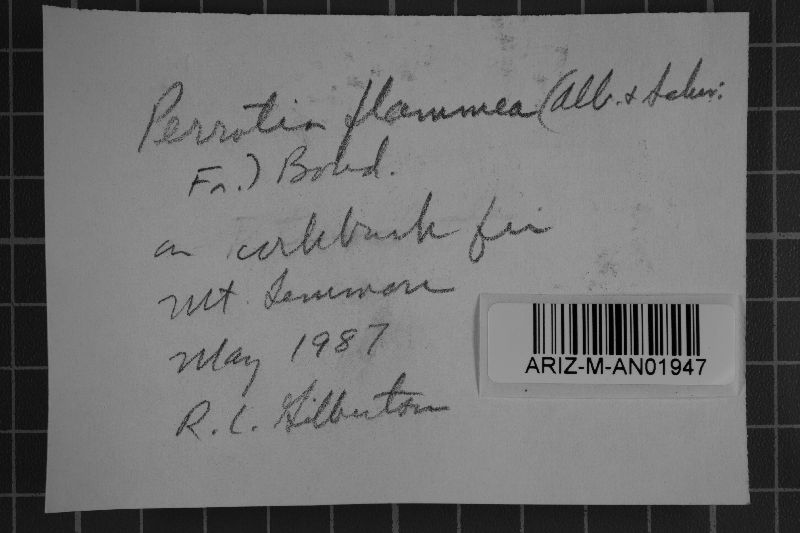 Perrotia flammea (Alb. & Schw.:
Fr.) Boud.
on corkbark fir
Mt Lemmon
May 1987
R. L. Gilbertson
ARIZ-M-AN01947